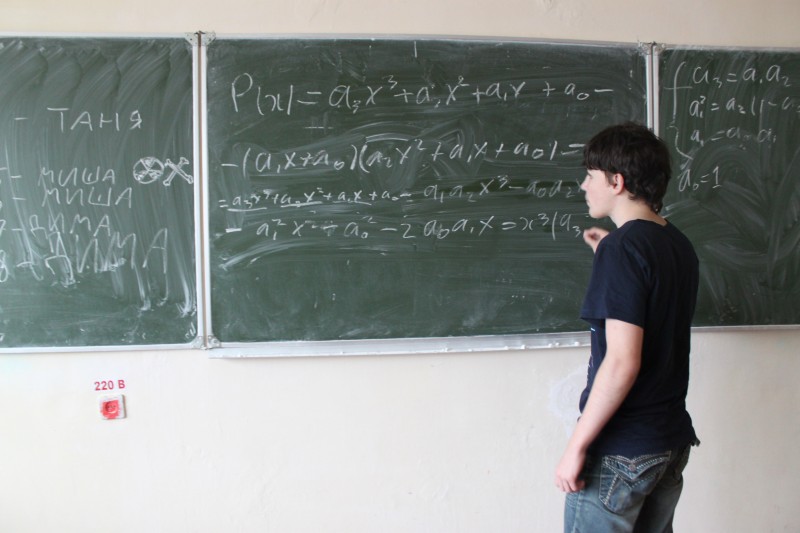 - ТАНЯ
- МИША
- МИША
- ДИМА
- ДИМА
P(x) = a₃x³ + a₂x² + a₁x + a₀ -
- (a₁x + a₀)(a₂x² + a₁x + a₀) =
= a₃x³ + a₀x² + a₁x + a₀ - a₁a₂x³ - a₀a₂
- a₁²x² + a₀² - 2a₀a₁x = x³(a₃
a₃ = a₁a₂
a₁² = a₂(1 - a
a₁ =
a₀ = 1
220 В